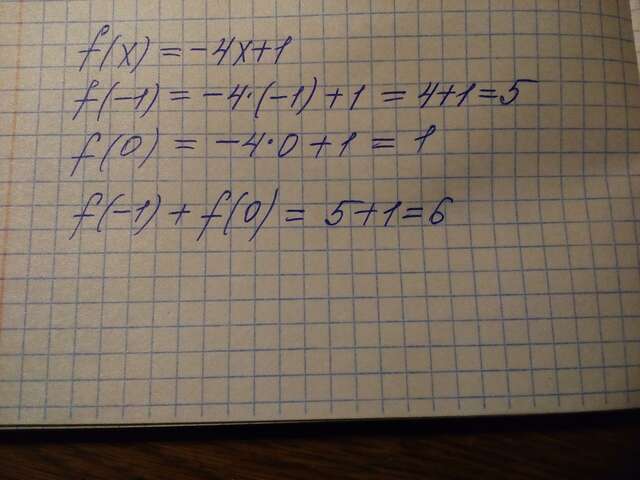 f(x) = -4x+1
f(-1) = -4·(-1)+1 = 4+1=5
f(0) = -4·0+1 = 1
f(-1) + f(0) = 5+1=6